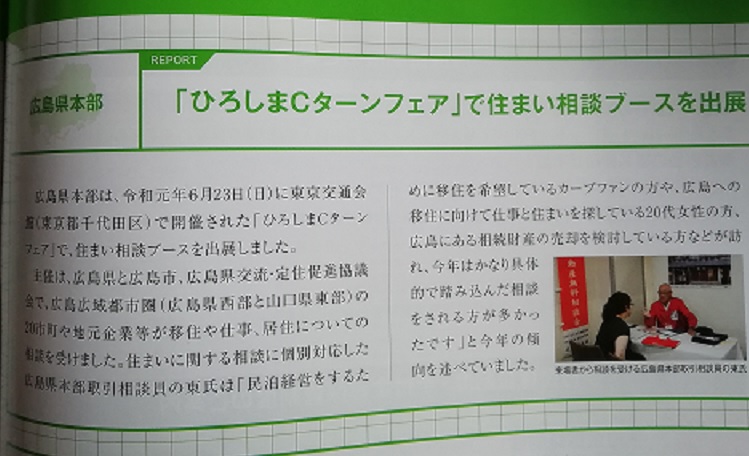 REPORT
広島県本部
「ひろしまCターンフェア」で住まい相談ブースを出展
広島県本部は、令和元年6月23日(日)に東京交通会
館(東京都千代田区)で開催された「ひろしまCターン
フェア」で、住まい相談ブースを出展しました。
主催は、広島県と広島市、広島県交流・定住促進協議
会で、広島広域都市圏(広島県西部と山口県東部)の
20市町や地元企業等が移住や仕事、居住についての
相談を受けました。住まいに関する相談に個別対応した
広島県本部取引相談員の東氏は「民泊経営をするた
めに移住を希望しているカープファンの方や、広島への
移住に向けて仕事と住まいを探している20代女性の方、
広島にある相続財産の売却を検討している方などが訪
れ、今年はかなり具体
的で踏み込んだ相談
をされる方が多かっ
たです」と今年の傾
向を述べていました。
動産無料相談
来場者から相談を受ける広島県本部取引相談員の東氏